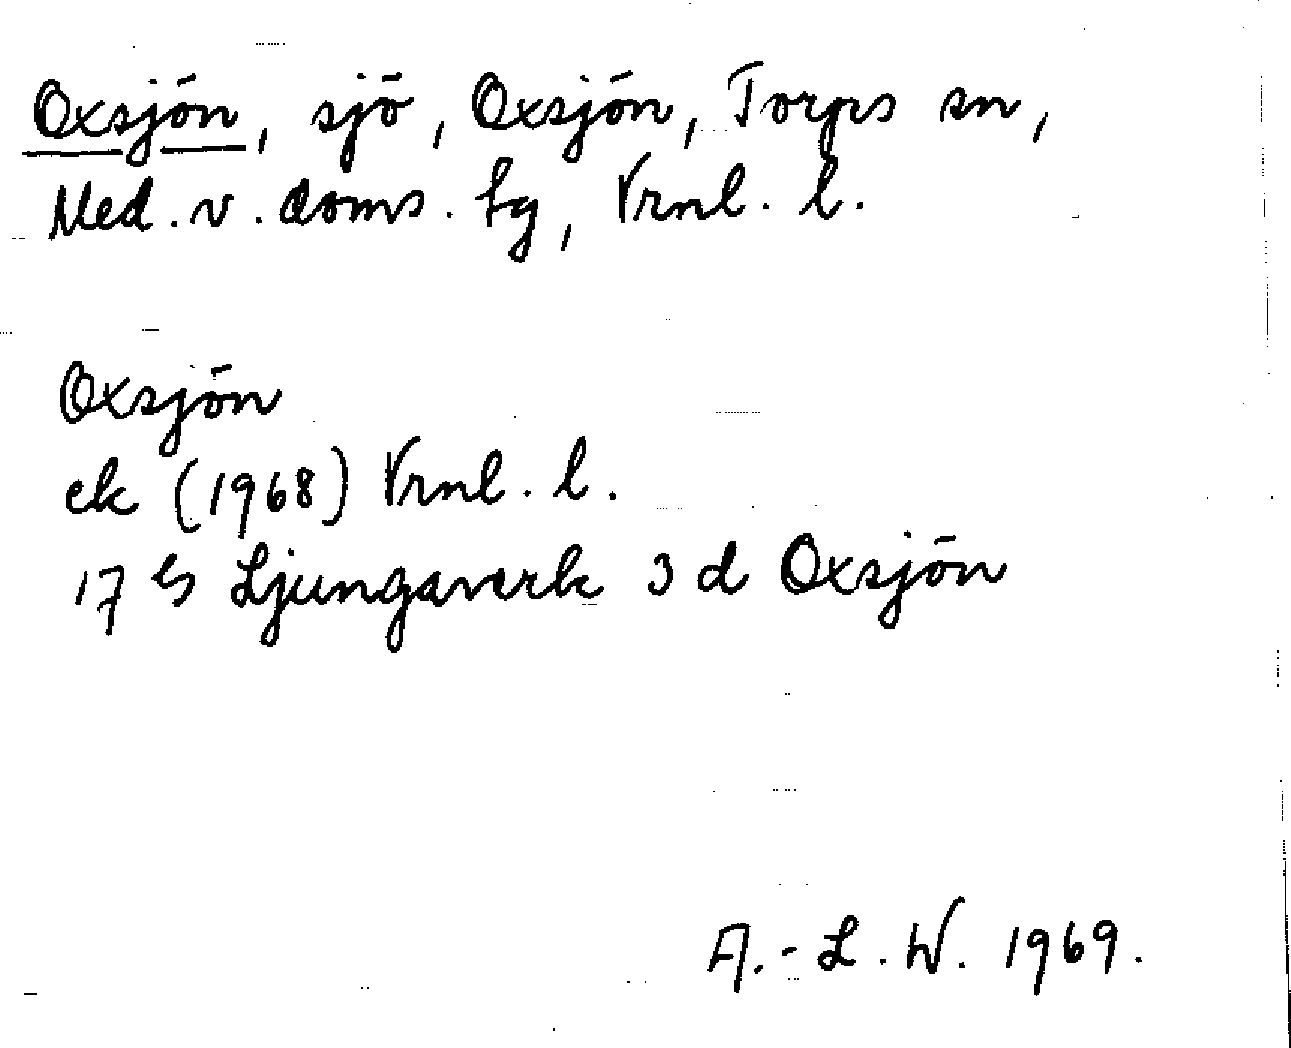 Oxsjön, sjö, Oxsjön, Torps sn,
Med. v. doms. fg, Vrnl. l.
Oxsjön
ek (1968) Vrnl. l.
17 es Ljungaverk 3 d Oxsjön
A.-L. W. 1969.